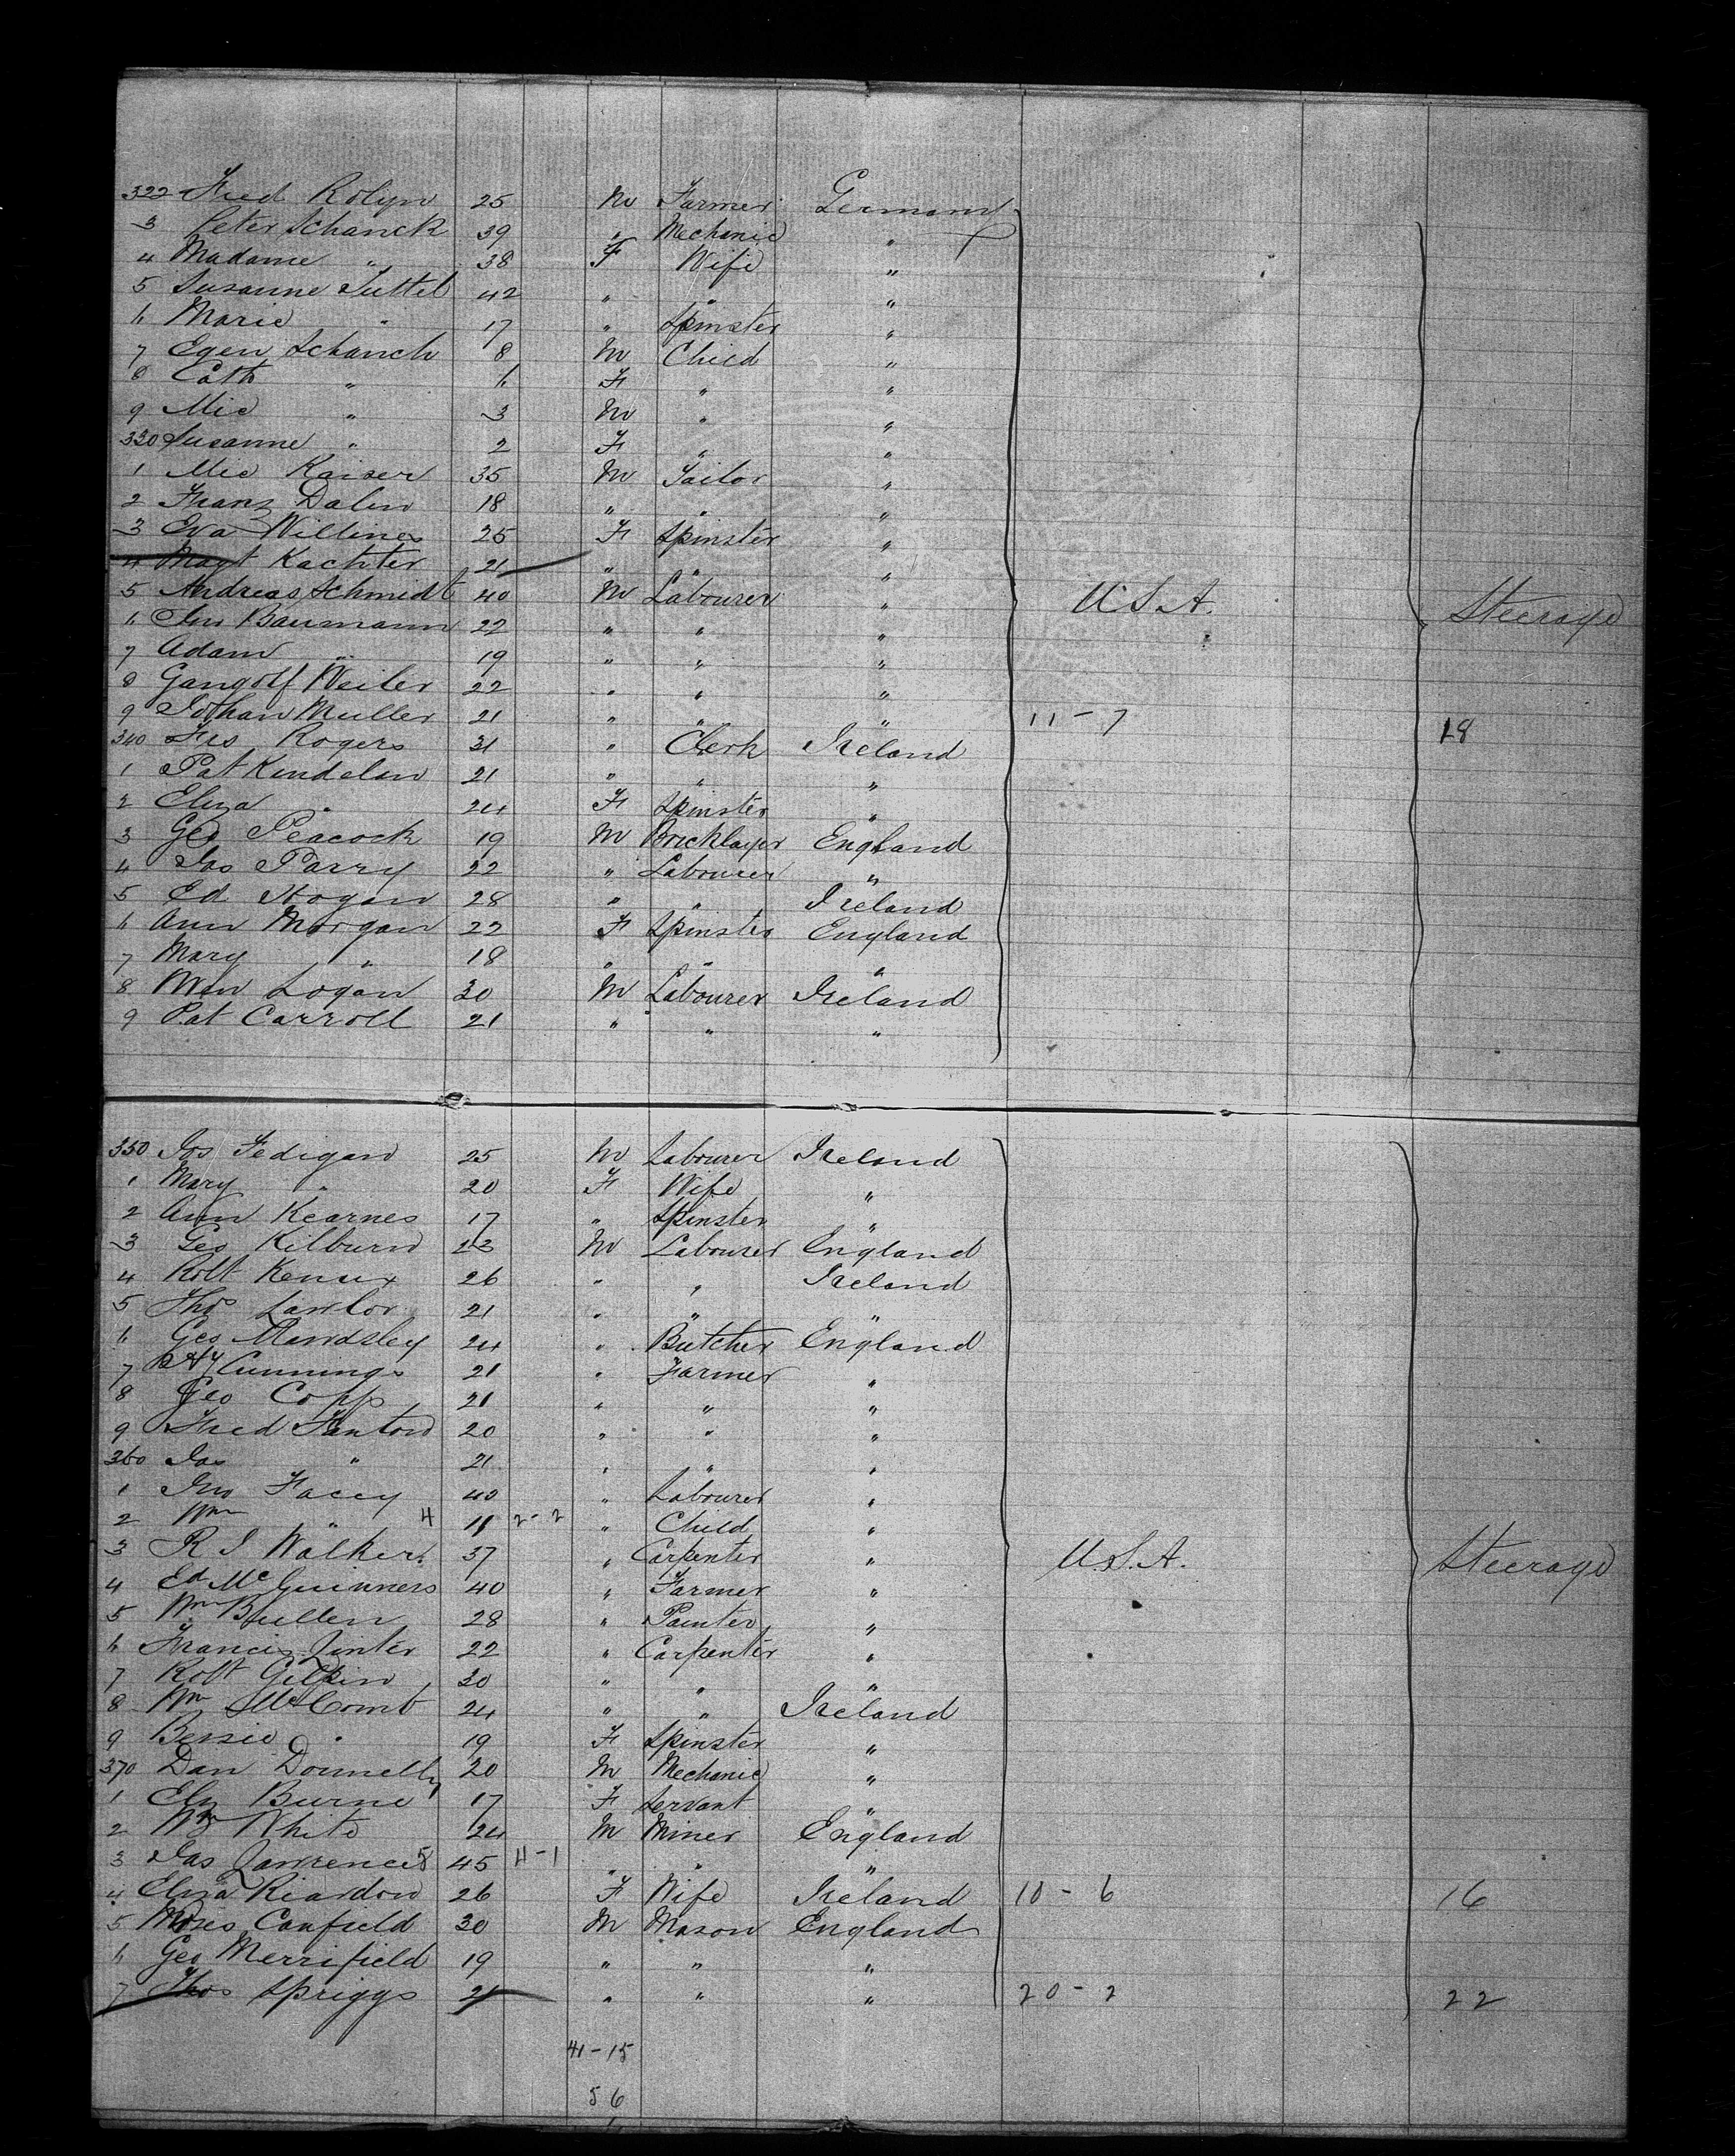 322 Fred Rolyn 25 M Farmer Germany
3 Peter Schanck 39 " Mechanic "
4 Madame " 38 F Wife "
5 Susanne Tuttel 42 " " "
6 Marie " 17 " Spinster "
7 Egen Schanck 8 M Child "
8 Cath " 6 F " "
9 Mic " 3 M " "
330 Susanne " 2 F " "
1 Mic Kaiser 35 M Tailor "
2 Franz Dalen 18 " " "
3 Eva Willines 25 F Spinster "
4 Magt Kachter 21 " " "
5 Andreas Schmidt 40 M Labourer " U.S.A. Steerage
6 Baumann 22 " " "
7 Adam " 19 " " "
8 Gangolf Weiler 22 " " "
9 Johan Muller 21 " " " 11-7 18
340 Fis Rogers 31 " Clerk Ireland
1 Pat Kendelan 21 " " "
2 Eliza " 24 F Spinster "
3 Geo Peacock 19 M Bricklayer England
4 Jas Parry 22 " Labourer "
5 Ed Hogan 28 " " Ireland
6 Ann Morgan 22 F Spinster England
7 Mary " 18 " " "
8 Wm Logan 30 M Labourer Ireland
9 Pat Carroll 21 " " "
350 Jos Fedigan 25 M Labourer Ireland
1 Mary " 20 F Wife "
2 Ann Kearnes 17 " Spinster "
3 Geo Kilburn 23 M Labourer England
4 Robt 26 " " Ireland
5 Thos Lawlor 21 " " "
6 Geo 24 " Butcher England
7 Hy Cunnings 21 " Farmer "
8 Geo Copp 21 " " "
9 Fred Fanton 20 " " "
360 Jas " 21 " " "
1 Jno Facey 40 " Labourer "
2 Wm " 4 11 2-2 " Child "
3 R J Walker 37 " Carpenter " U.S.A. Steerage
4 Ed McGuinners 40 " Farmer "
5 Wm Bullen 28 " Painter "
6 Francis 22 " Carpenter "
7 Robt Gilpin 30 " " "
8 Wm McComb 24 " " Ireland
9 Bessie " 19 F Spinster "
370 Dan Donnelly 20 M Mechanic "
1 Elz Burne 17 F Servant "
2 Wm White 24 M Miner England
3 Jas Lawrence 5 45 4-1 " " "
4 Eliza Riardon 26 F Wife Ireland 10-6 16
5 Moses Canfield 30 M Mason England
6 Geo Merrifield 19 " " "
7 Thos Spriggs 21 " " " 20-2 22
41-15
56